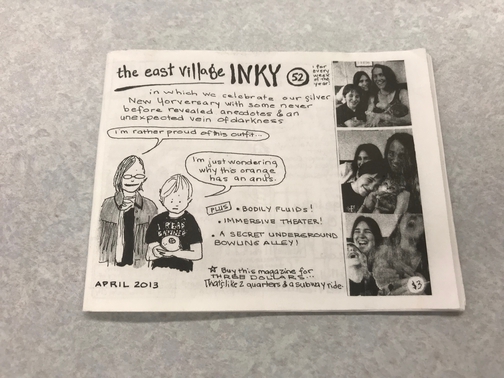 the east village INKY 52
1 for every week of the year!
in which we celebrate our silver
New Yorversary with some never
before revealed anecdotes & an
unexpected vein of darkness
I'm rather proud of this outfit...
I'm just wondering
why this orange
has an anus.
I READ
PLUS • BODILY FLUIDS!
• IMMERSIVE THEATER!
• A SECRET UNDERGROUND
BOWLING ALLEY!
☆ Buy this magazine for
THREE DOLLARS...
That's like 2 quarters & a subway ride.
APRIL 2013
$3